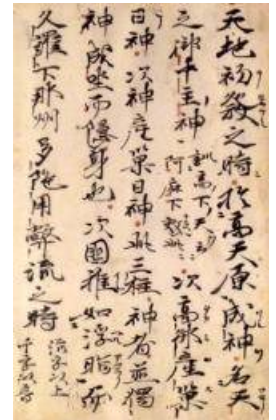 天地初發之時於高天原成神名天
之御中主神訓高下天云阿麻下效此次高御產巢
日神次神產巢日神此三柱神者並獨
神成坐而隱身也次國稚如浮脂而
久羅下那州多陀用弊流之時流字以上十字以音